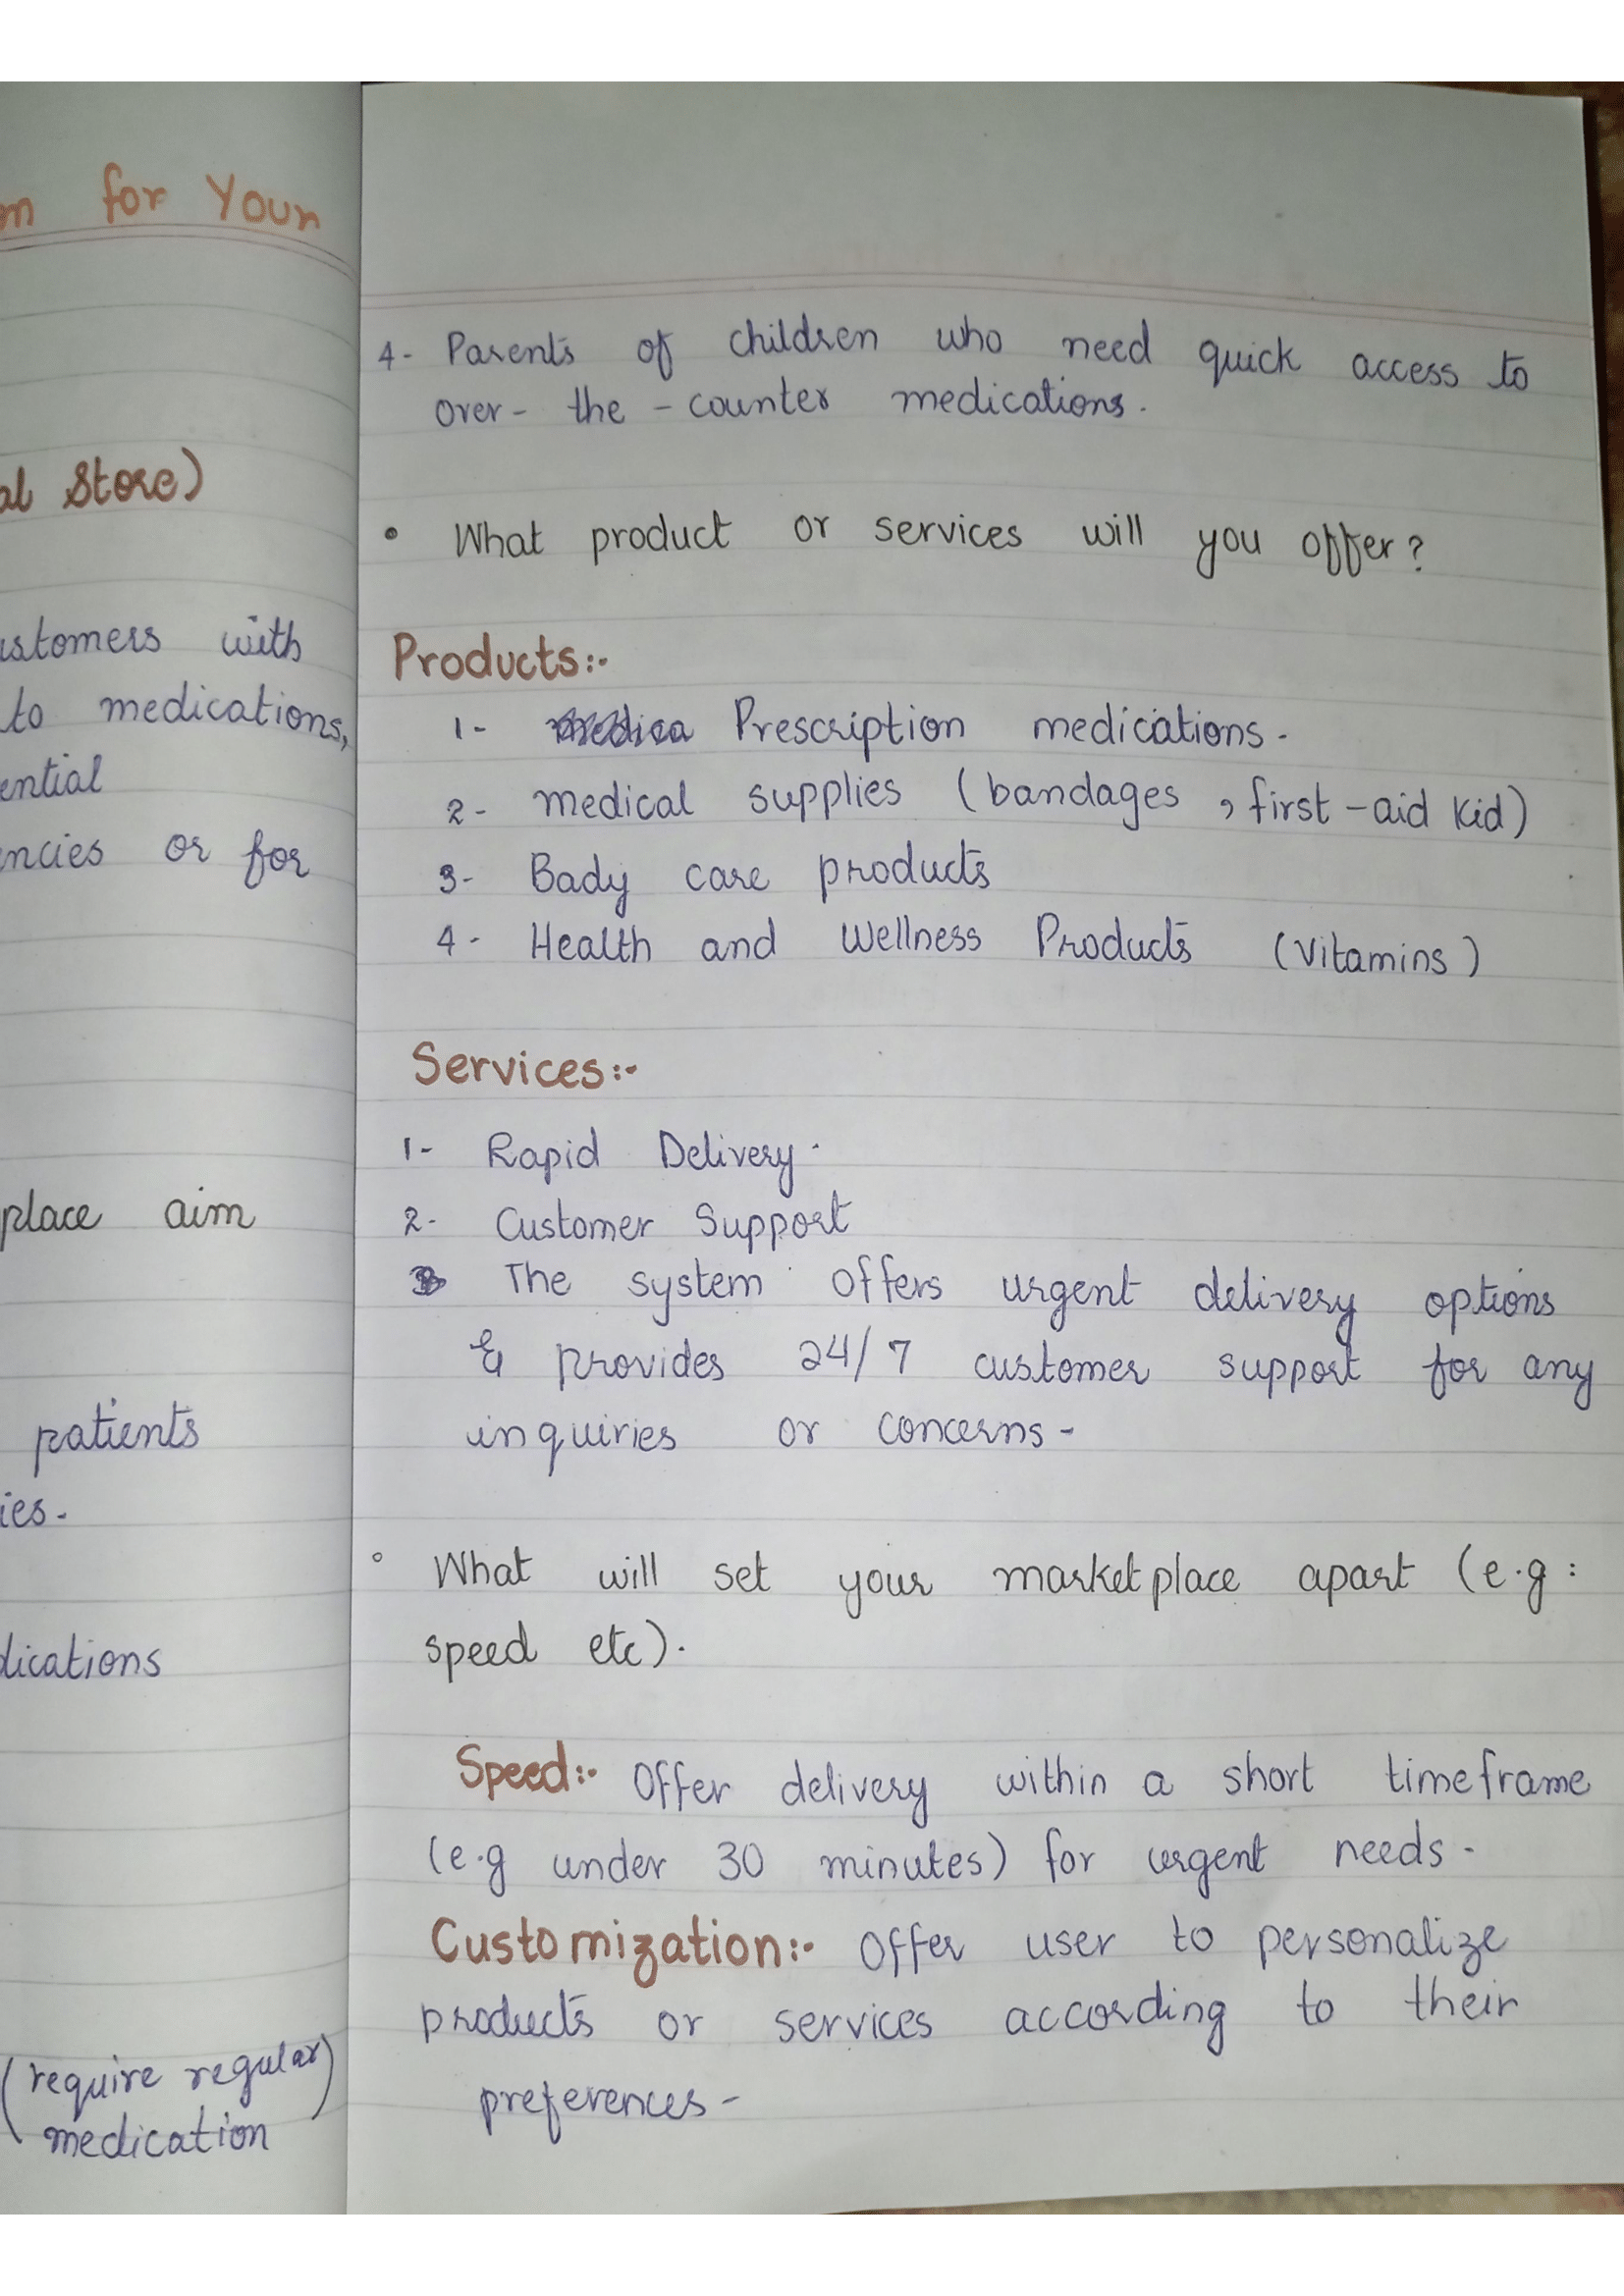 for Your
Store)
with
to medications,
or for
place aim
patients
(require regular)
medication
4- Parents of children who need quick access to
over - the - counter medications.
• What product or services will you offer?
Products:-
1- Prescription medications.
2- medical supplies (bandages , first-aid Kid)
3- Bady care products
4- Health and Wellness Products (Vitamins)
Services:-
1- Rapid Delivery.
2- Customer Support
The system offers urgent delivery options
& provides 24/7 customer support for any
inquiries or concerns -
° What will set your marketplace apart (e.g:
speed etc).
Speed:- Offer delivery within a short timeframe
(e.g under 30 minutes) for urgent needs -
Customization:- Offer user to personalize
products or services according to their
preferences -